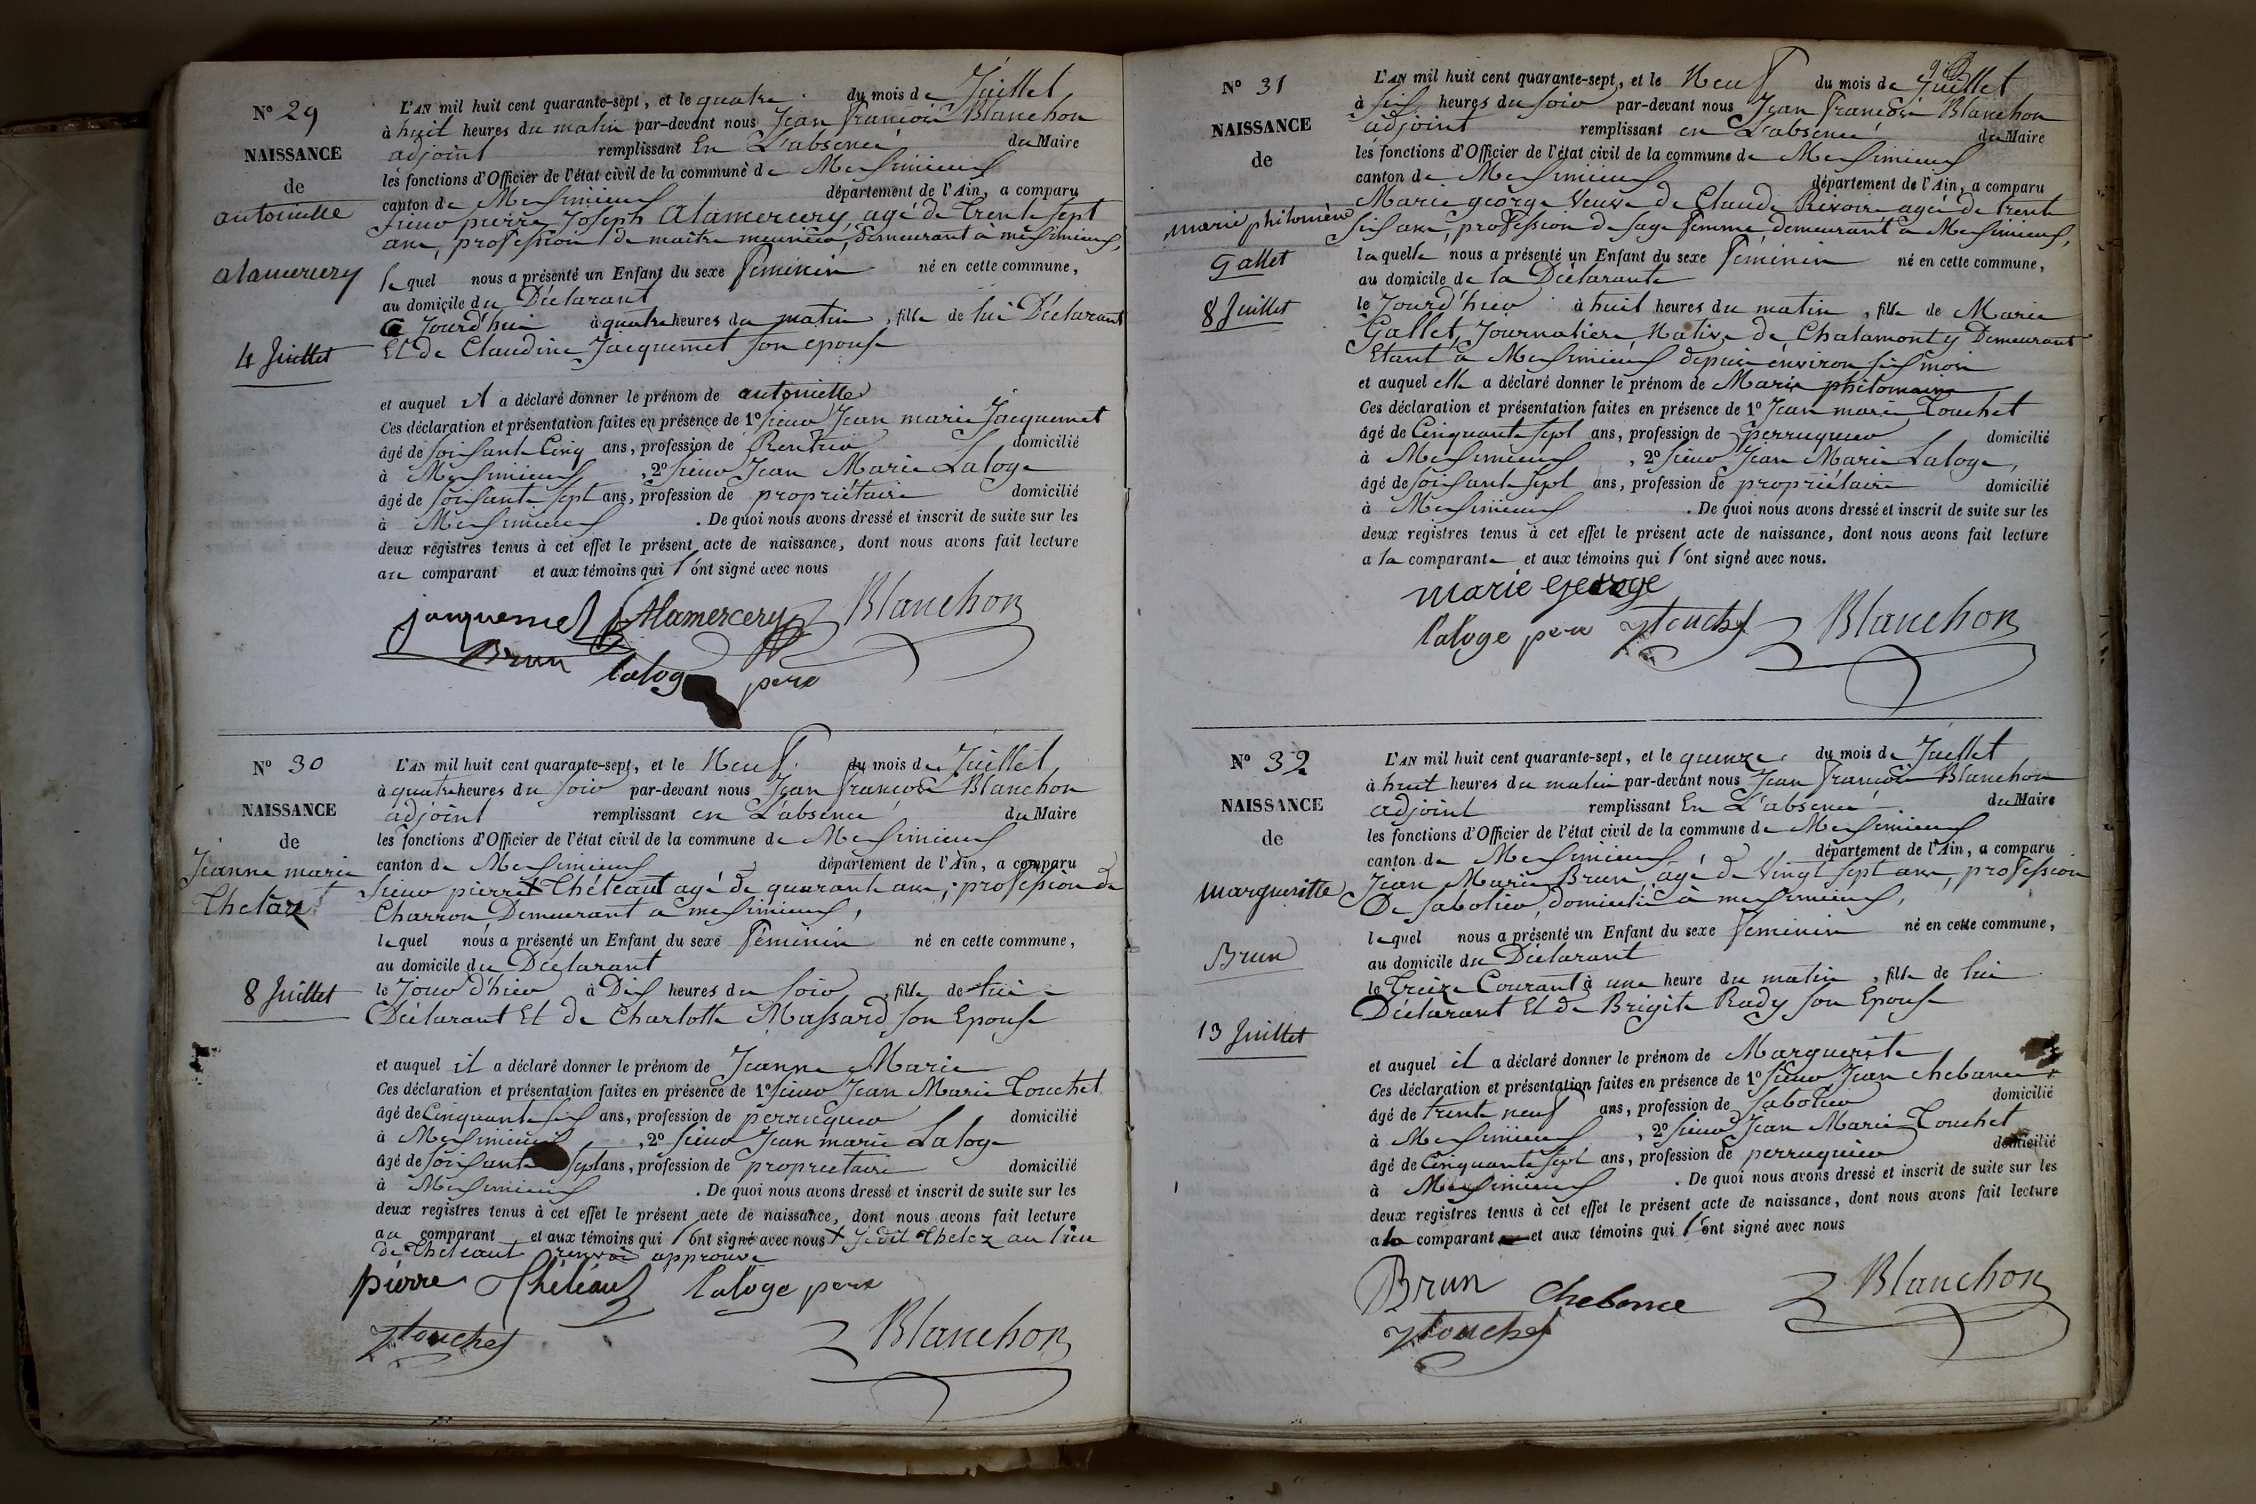 N° 29
NAISSANCE
de
antoinette
alamercery
4 Juillet
L'AN mil huit cent quarante-sept, et le quatre du mois de Juillet
à huit heures du matin par-devant nous Jean francois Blanchon
adjoint remplissant En L'absence du Maire
les fonctions d'Officier de l'état civil de la commune de Messimieux
canton de Messimieux département de l'Ain, a comparu
sieur pierre Joseph Alamercery, agé de Trente sept
ans, profession de maître meunier, demeurant à messimieux,
lequel nous a présenté un Enfant du sexe féminin né en cette commune,
au domicile du Déclarant
ce Jourd'hui à quatre heures du matin, fille de lui Déclarant
Et de Claudine Jacquemet son epouse
et auquel il a déclaré donner le prénom de antoinette
Ces déclaration et présentation faites en présence de 1° sieur Jean marie Jacquemet
âgé de soissante Cinq ans, profession de Rentier domicilié
à Messimieux, 2° sieur Jean Marie Laloge
âgé de soissante sept ans, profession de propriétaire domicilié
à Messimieux. De quoi nous avons dressé et inscrit de suite sur les
deux registres tenus à cet effet le présent acte de naissance, dont nous avons fait lecture
au comparant et aux témoins qui l'ont signé avec nous
jacquemet Alamercery Blanchon
Brun laloge pere
N° 30
NAISSANCE
de
Jeanne marie
Thelez
8 Juillet
L'AN mil huit cent quarante-sept, et le Neuf du mois de Juillet
à quatre heures du soir par-devant nous Jean francois Blanchon
adjoint remplissant en L'absence du Maire
les fonctions d'Officier de l'état civil de la commune de Messimieux
canton de Messimieux département de l'Ain, a comparu
sieur pierre Théléaut agé de quarante ans, profession de
Charron Demeurant a messimieux,
lequel nous a présenté un Enfant du sexe féminin né en cette commune,
au domicile du Déclarant
le Jour d'hier à Dix heures du soir, fille de lui
Déclarant Et de Charlotte Massard son Epouse
et auquel il a déclaré donner le prénom de Jeanne Marie
Ces déclaration et présentation faites en présence de 1° sieur Jean Marie Touchet
âgé de Cinquante six ans, profession de perruquier domicilié
à Messimieux, 2° sieur Jean marie Laloge
âgé de soissante sept ans, profession de propriétaire domicilié
à Messimieux. De quoi nous avons dressé et inscrit de suite sur les
deux registres tenus à cet effet le présent acte de naissance, dont nous avons fait lecture
au comparant et aux témoins qui l'ont signé avec nous + Je dit Thelez au lieu
de Theleaut renvoi approuvé
pierre Théléaut laloge pere
touchet Blanchon
N° 31
NAISSANCE
de
marie philomène
Gallet
8 Juillet
L'AN mil huit cent quarante-sept, et le Neuf du mois de Juillet
à six heures du soir par-devant nous Jean francois Blanchon
adjoint remplissant en L'absence du Maire
les fonctions d'Officier de l'état civil de la commune de Messimieux
canton de Messimieux département de l'Ain, a comparu
Marie george Veuve de Claude Revoire agée de trente
six ans, profession de sage femme demeurant a Messimieux,
laquelle nous a présenté un Enfant du sexe féminin né en cette commune,
au domicile de la Déclarante
le Jourd'hier à huit heures du matin, fille de Marie
Gallet, Journalière Native de Chalamont y Demeurant
Etant à Messimieux depuis environ six mois
et auquel elle a déclaré donner le prénom de Marie philomaine
Ces déclaration et présentation faites en présence de 1° Jean marie Touchet
âgé de Cinquante sept ans, profession de perruquier domicilié
à Messimieux, 2° sieur Jean Marie Laloge,
âgé de soissante sept ans, profession de propriétaire domicilié
à Messimieux. De quoi nous avons dressé et inscrit de suite sur les
deux registres tenus à cet effet le présent acte de naissance, dont nous avons fait lecture
a la comparante et aux témoins qui l'ont signé avec nous.
marie george
laloge pere touchet Blanchon
N° 32
NAISSANCE
de
margueritte
Brun
13 Juillet
L'AN mil huit cent quarante-sept, et le quinze du mois de Juillet
à huit heures du matin par-devant nous Jean francois Blanchon
adjoint remplissant En L'absence du Maire
les fonctions d'Officier de l'état civil de la commune de Messimieux
canton de Messimieux département de l'Ain, a comparu
Jean Marie Brun, agé de Vingt sept ans, profession
De sabotier, domicilié à messimieux,
lequel nous a présenté un Enfant du sexe féminin né en cette commune,
au domicile du Déclarant
le Treize Courant à une heure du matin, fille de lui
Déclarant Et de Brigite Rady son Epouse
et auquel il a déclaré donner le prénom de Marguerite
Ces déclaration et présentation faites en présence de 1° sieur Jean chebance
âgé de trente neuf ans, profession de sabotier domicilié
à Messimieux, 2° sieur Jean Marie Touchet
âgé de Cinquante sept ans, profession de perruquier domicilié
à Messimieux. De quoi nous avons dressé et inscrit de suite sur les
deux registres tenus à cet effet le présent acte de naissance, dont nous avons fait lecture
a comparant et aux témoins qui l'ont signé avec nous
Brun Chebance Blanchon
touchet